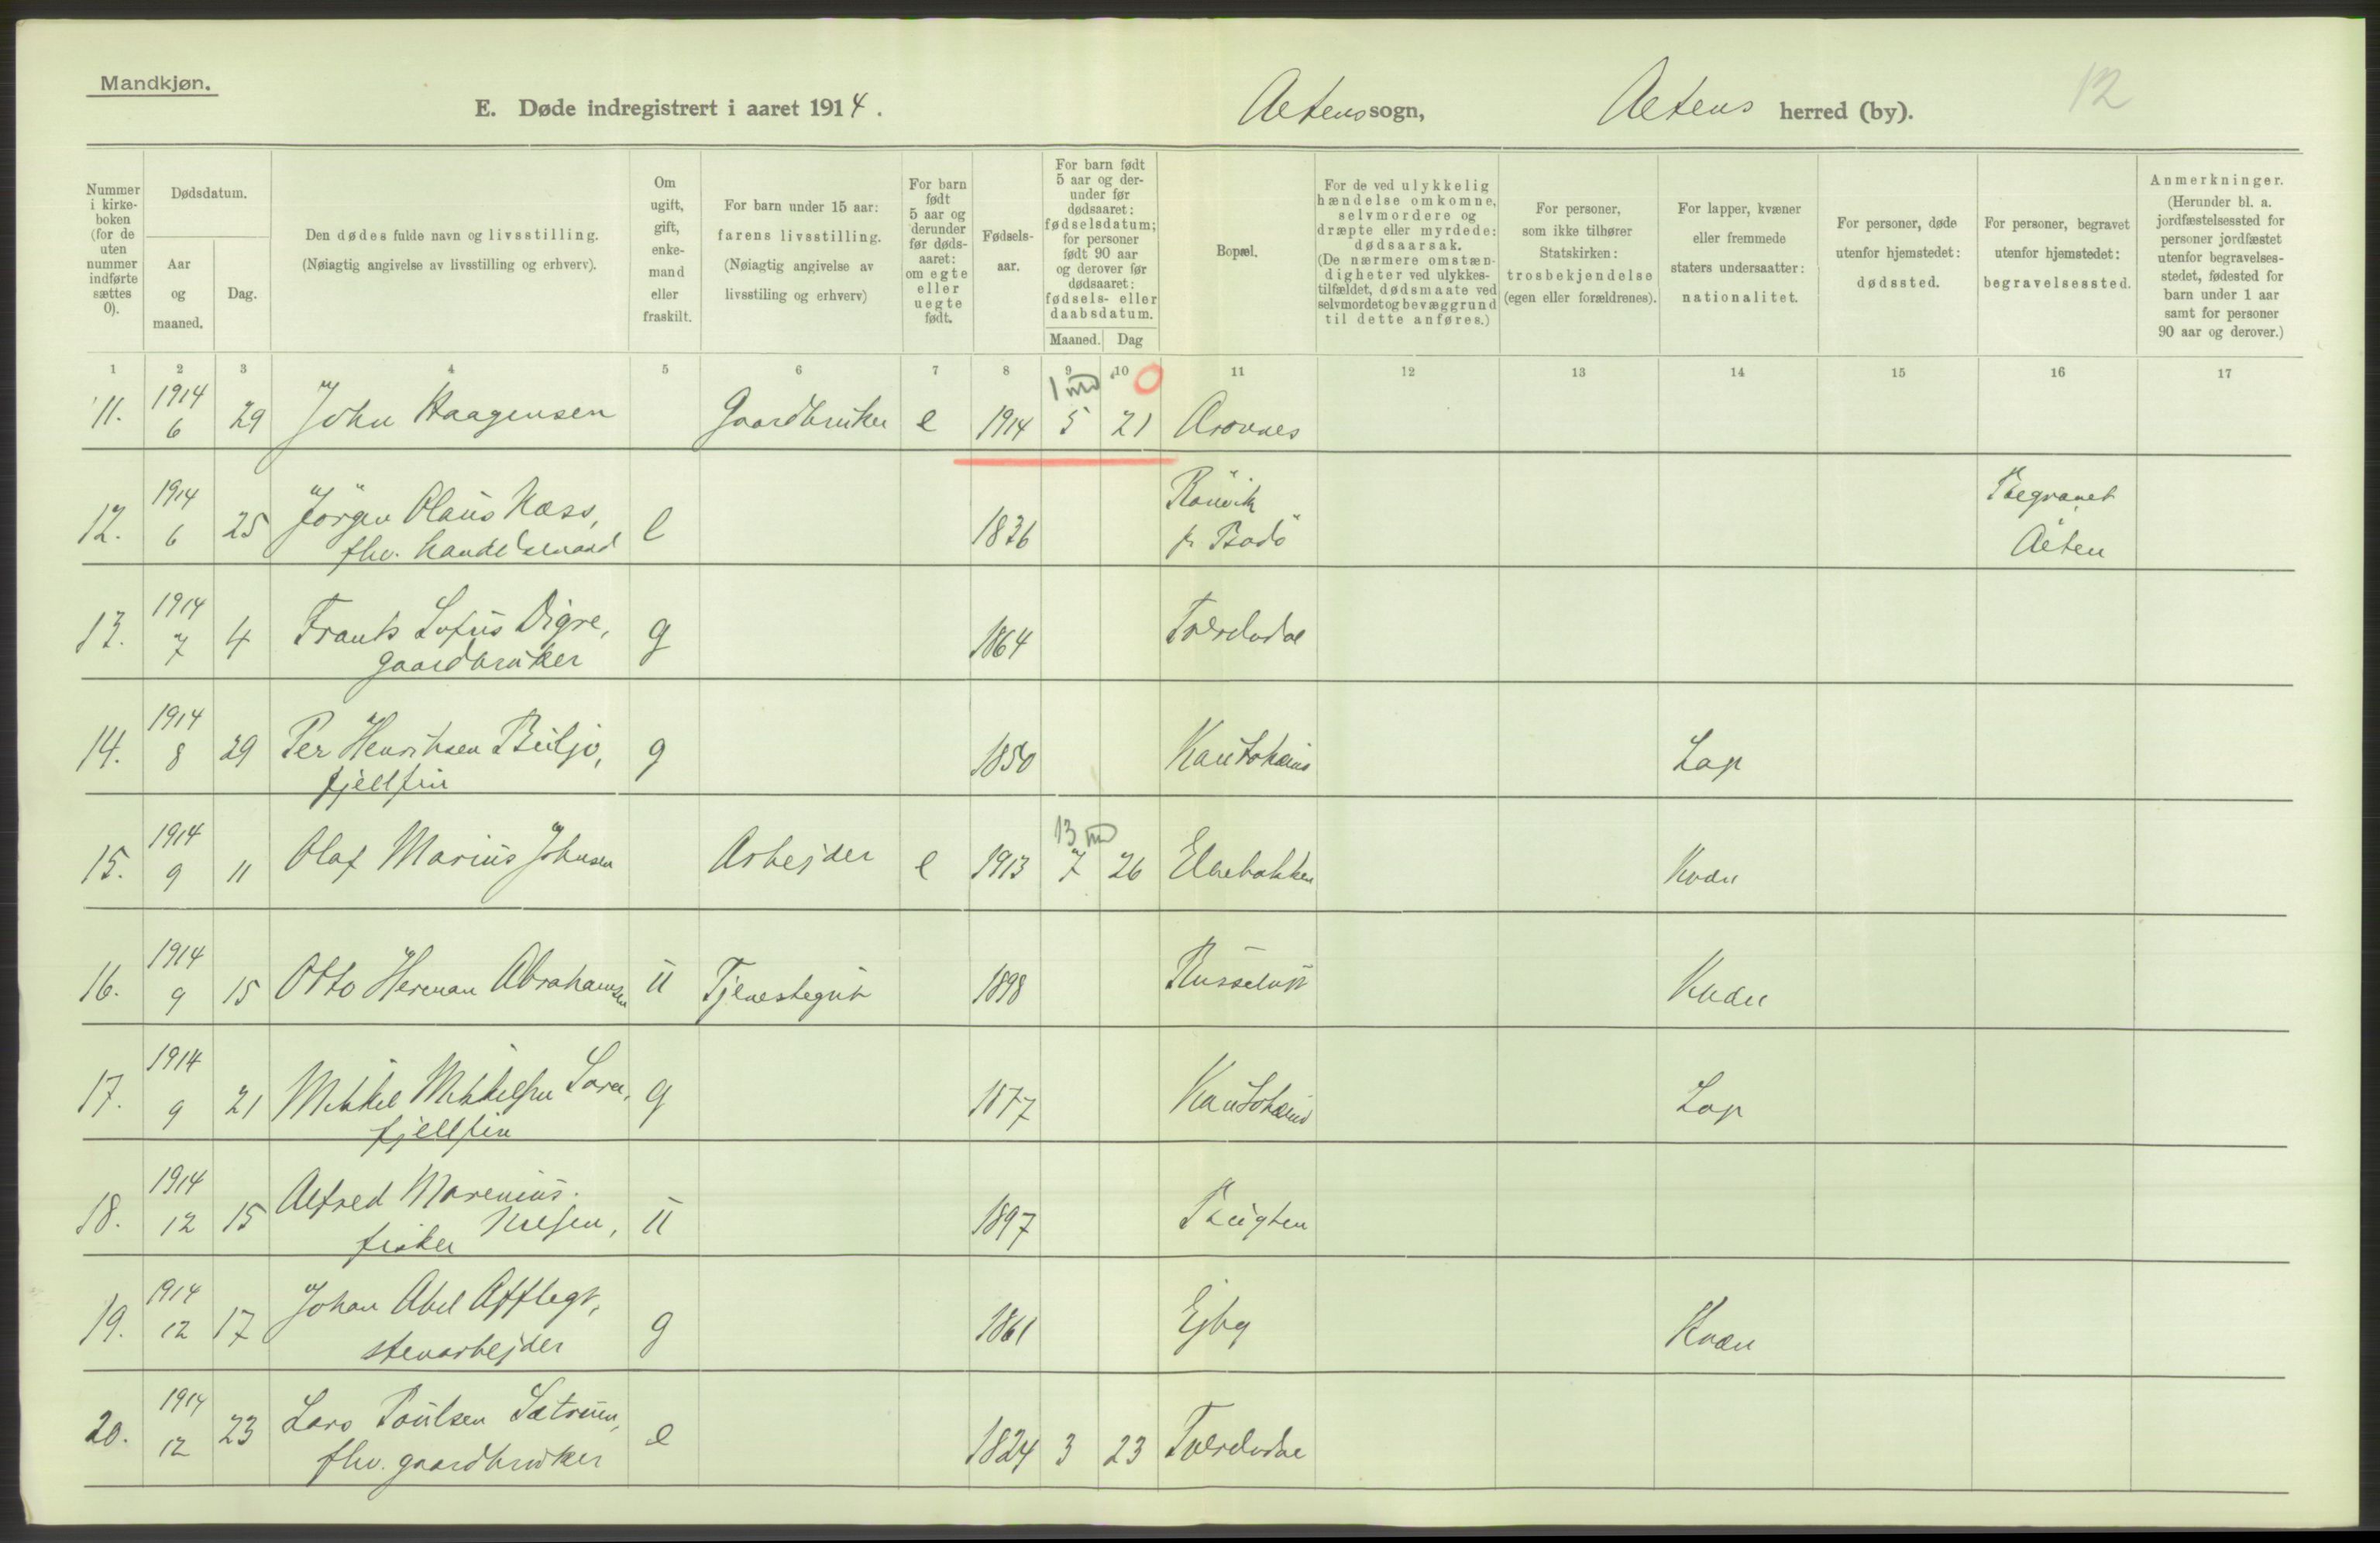 Mandkjøn.
E. Døde indregistrert i aaret 1914. Altens sogn, Altens herred (by). 12
Nummer i kirke-boken (for de uten nummer indførte sættes 0).
Dødsdatum.
Aar og maaned.
Dag.
Den dødes fulde navn og livsstilling.
(Nøiagtig angivelse av livsstilling og erhverv).
Om ugift, gift, enke-mand eller fraskilt.
For barn under 15 aar:
farens livsstilling.
(Nøiagtig angivelse av
livsstiling og erhverv)
For barn født 5 aar og derunder før døds-aaret: om egte eller uegte født.
Fødsels-aar.
For barn født 5 aar og der-under før dødsaaret: fødselsdatum; for personer født 90 aar og derover før dødsaaret: fødsels- eller daabsdatum.
Maaned. Dag
Bopæl.
For de ved ulykkelig hændelse omkomne, selvmordere og dræpte eller myrdede: dødsaarsak. (De nærmere omstæn-digheter ved ulykkes-tilfældet, dødsmaate ved selvmordet og bevæggrund til dette anføres.)
For personer, som ikke tilhører Statskirken: trosbekjendelse (egen eller forældrenes).
For lapper, kvæner eller fremmede staters undersaatter: nationalitet.
For personer, døde utenfor hjemstedet: dødssted.
For personer, begravet utenfor hjemstedet: begravelsessted.
Anmerkninger.
(Herunder bl. a. jordfæstelsessted for personer jordfæstet utenfor begravelses-stedet, fødested for barn under 1 aar samt for personer 90 aar og derover.)
1 2 3 4 5 6 7 8 9 10 11 12 13 14 15 16 17
11. 1914 6 29 John Haagensen Gaardbruker e 1914 1 md 5 21
12. 1914 6 25 Jörgen Olaus Næss,
fhv. handelsmand e 1836 Rønvik
p. Bodö Begravet
Alten
13. 1914 7 4 Frants Sofus Digre,
gaardbruker g 1864 Tverelvdal
14. 1914 8 29 Per Henriksen Buljo,
fjellfin g 1850 Kautokeino Lap
15. 1914 9 11 Olaf Marius Johnsen Arbejder e 1913 13 md 7 26 Elvebakken Kvæn
16. 1914 9 15 Otto Herman Abrahamsen u Tjenestegut 1898 Russeluft Kvæn
17. 1914 9 21 Mikkel Mikkelsen Sara,
fjellfin g 1877 Kautokeino Lap
18. 1914 12 15 Alfred Marenius
Nilsen,
fisker u 1897
19. 1914 12 17 Johan Abel
stenarbejder g 1861 Ejby Kvæn
20. 1914 12 23 Lars Poulsen
fhv. gaardbruker e 1824 3 23 Tverelvdal